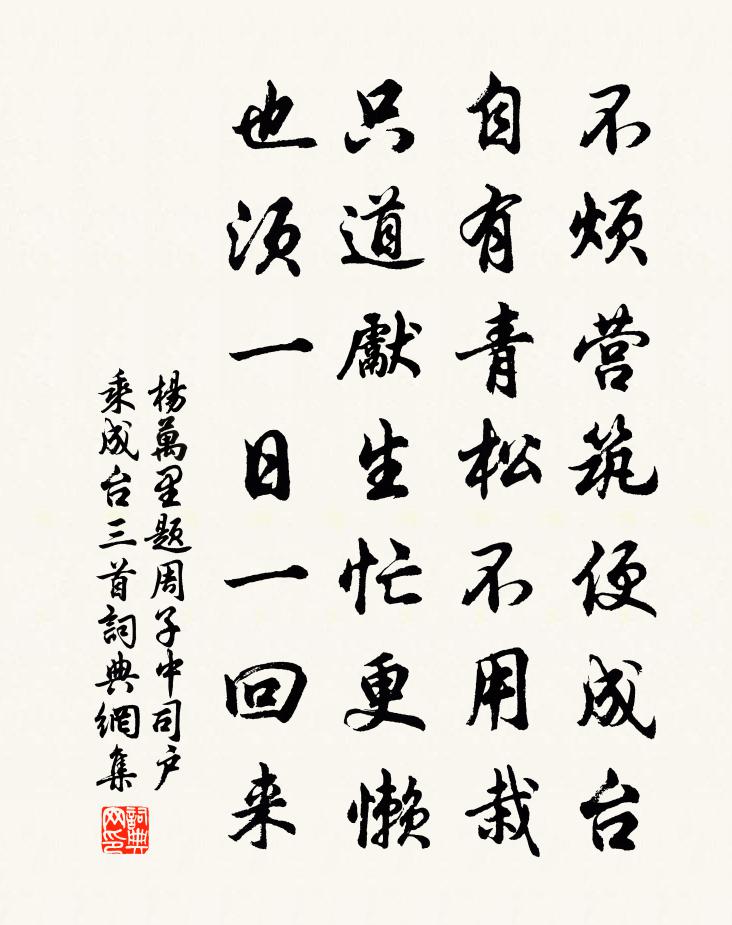 不烦营筑便成台
自有青松不用栽
只道獻生忙更懒
也须一日一回来
楊萬里题周子中司户
乘成台三首詞典網集
詞典网印